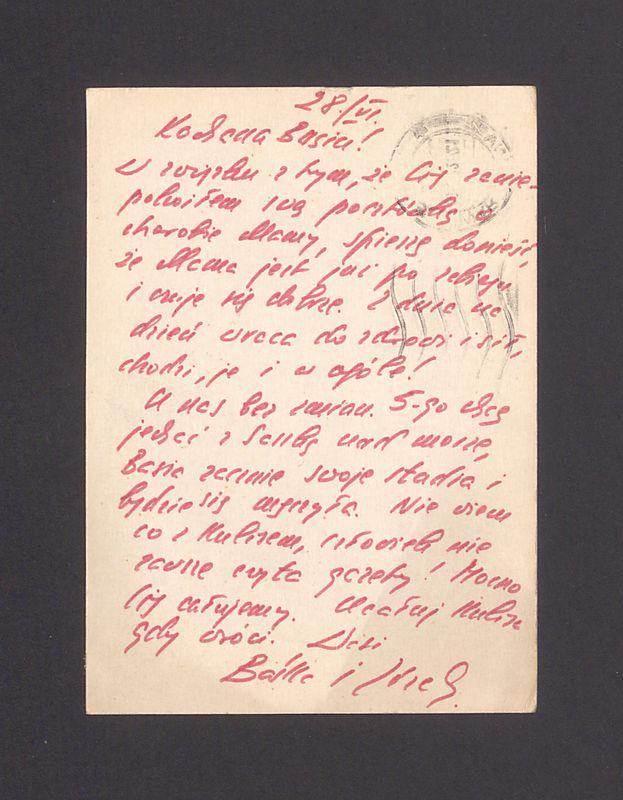 28/VI.
Kochana Basiu!
W związku z tym, że Cię zanie-
pokoiłem swą pocztówką o
chorobie Mamy, spieszę donieść,
że Mama jest już po
i czuje się dobrze. Z dnia na
dzień wraca do zdrowia i sił,
chodzi, je i w ogóle!
U nas bez zmian. 5-go chcę
jechać z nad morze,
Basia zacznie swoje studia i
będzie się męczyła. Nie wiem
co z człowiek nie
zawsze czyta gazety! Mocno
Cię całujemy. Ucałuj
gdy wróci. Wasi
Baśka i